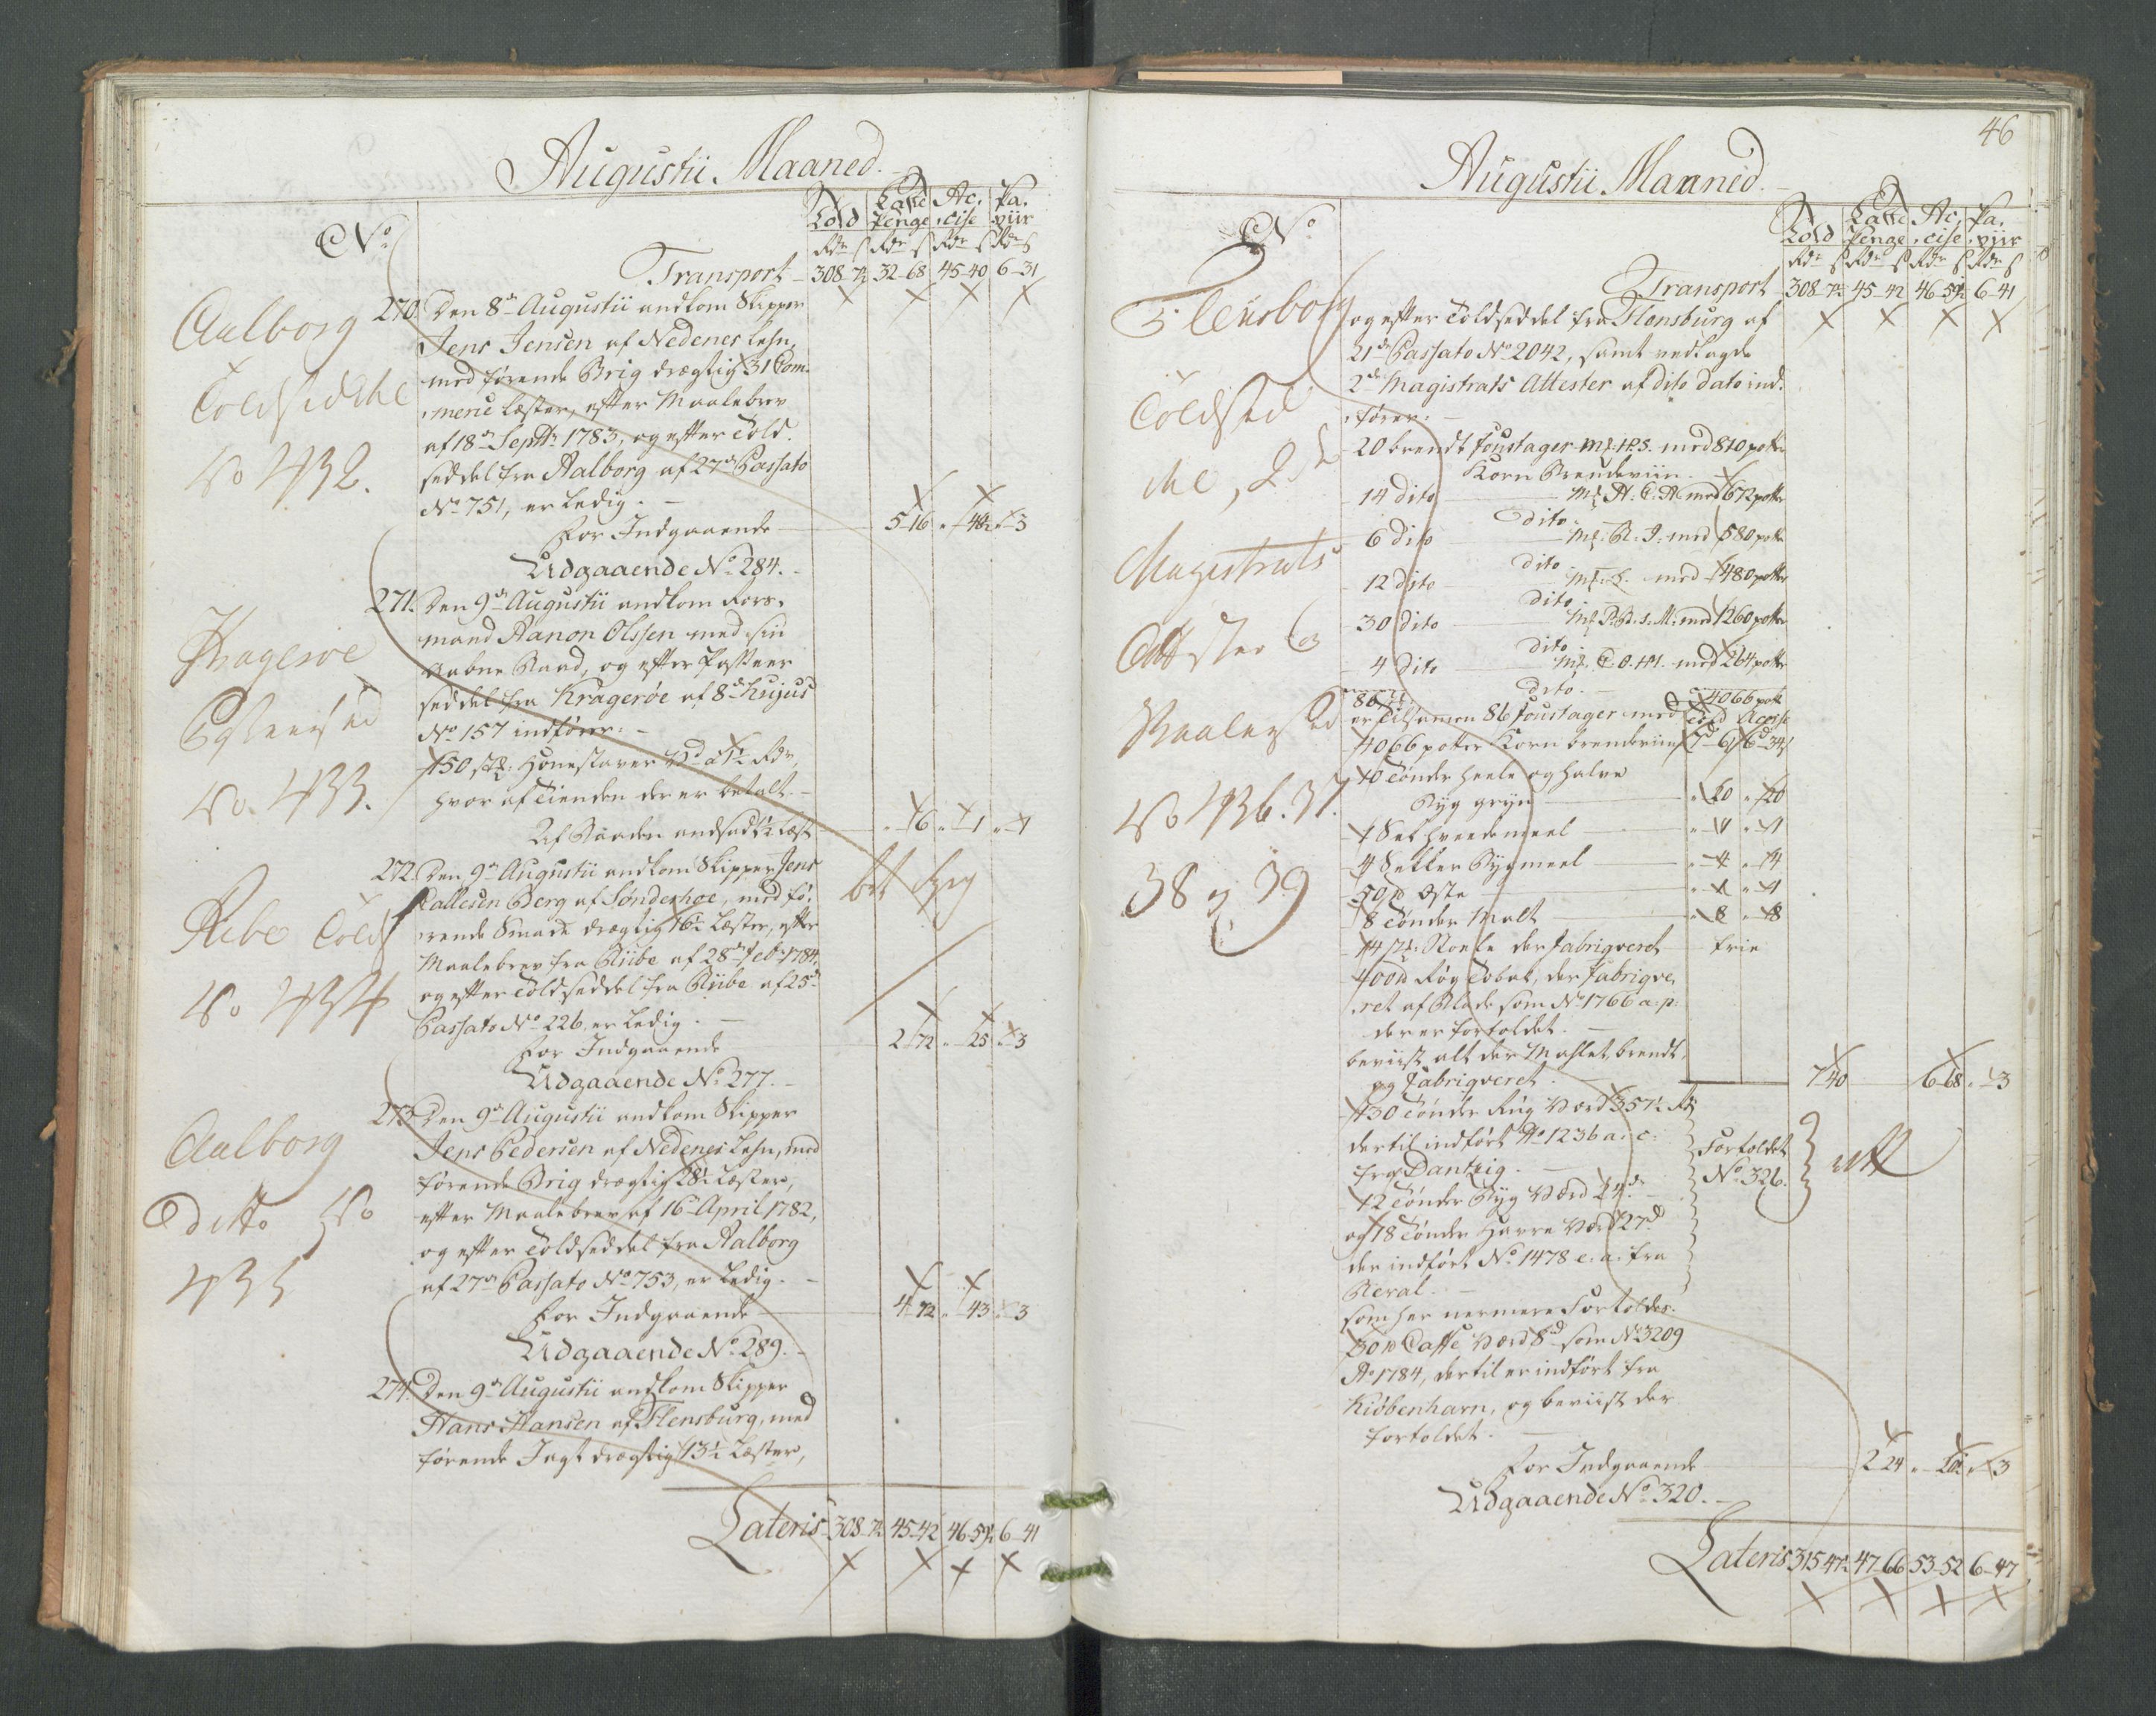 Augustii Maaned.
No
Told
Laste Penge
Ac,
cise
Pa,
piir
Rdr s Rdr s Rdr s Rdr s
Transport 308-7½ 32-68 45-40 6-31
Aalborg
Toldseddel
No 432.
270. Den 8de Augustii ankom Skipper
Jens Jensen af Nedenes Lehn,
med førende Brig drægtig 31 Com-
merce Læster, efter Maalebrev
af 18de Septbr 1783, og efter Told-
seddel fra Aalborg af 27de Passato
No 751, er Ledig. -
For Indgaaende 5-16 " 44½ " 3
Udgaaende No 284. -
Kragerøe
Passeersed
No. 433.
271. Den 9de Augustii ankom Fors-
mand Aanon Olssen med sin
aabne Baad, og efter Passeer
seddel fra Kragerøe af 8de hujus
No 157 indfører: -
150 st: Hønestaver
hvor af Tienden der er betalt. -
Af Baaden ansadt ½ Læst " 6 " 1 " 1
Ribe Tolds
No 434
272. Den 9de Augustii ankom Skipper Jens
Pallesen Berg af Sønderhoe, med fø-
rende Smack drægtig 16½ Læster, efter
Maalebrev fra Riibe af 28de Feb: 1784.
og efter Toldseddel fra Riibe af 25de
Passato No 226, er Ledig. -
For Indgaaende 2-72 " 25 " 3
Udgaaende No 277. -
Aalborg
Ditto No
435
273. Den 9de Augustii ankom Skipper
Jens Pedersen af Nedenes Lehn, med
førende Brig drægtig 28½ Læster,
efter Maalebrev af 16de April 1782,
og efter Toldseddel fra Aalborg
af 27de Passato No 753, er Ledig. -
For Indgaaende 4-72 " 43 " 3
Udgaaende No 289. -
274. Den 9de Augustii ankom Skipper
Hans Hansen af Flensburg, med
førende Jagt drægtig 13½ Læster,
Lateris 308-7½ 45-42 46-57½ 6-41
46
Augustii Maaned.
No
Told
Laste Penge
Ac,
cise
Pa,
piir
Rdr s Rdr s Rdr s Rdr s
Transport 308-7½ 45-42 46-57½ 6-41
Flensborg
Toldsed
del, 2de
Magistrats
Attester
Maalesed
No 436. 37.
38 og 39
og efter Toldseddel fra Flensburg af
21de Passato No 2042, samt vedlagde
2de Magistrats Attester af dito dato ind-
fører: -
20 brendt foustager M: H.S. med 810 potter
Korn Brendeviin -
14 dito M: A.C.A. med 672 potter
dito
6 dito M: R.J: med 580 potter
dito
12 dito M: L. med 480 potter
dito
30 dito M: P.R.S.M: med 1260 potter
dito
4 dito M: C.O.M. med 264 potter
dito -
86 4066 pott
er Tilsamen 86 foustager med Told Accise
4066 potter Korn brendeviin 7-61 6-34
10 Tønder heele og halve
Byg gryn " 20 " 20
1 Sek hvedemeel " 1 " 1
4 Sekker Bygmeel " 4 " 4
50 lb Oste " 1 " 1
8 Tønder Malt " 8 " 8
14 st: Stoele der Fabriqveret frie
400 lb Røg Tobak, der Fabriqve-
ret af Blade som No 1766 a: p:
der er fortoldet. -
beviist alt der Mahlet, brendt,
og Fabriqveret. - 7-40 6-68 " 3
130 Tønder Rug Værd 357½ Rdr
dertil indført No 1236 a: c:
fra Dantzig. -
12 Tønder Byg Værd 24 dr
og 18 Tønder Havre Værd 27 d
der indført No 1478 e. a. fra
Reval. -
Fortoldet
No 326.
som her nermere Fortoldes.
30 lb Caffe Værd 8 d som No 3209
Ao 1784, dertil er indført fra
Kiöbenhavn, og beviist der
fortoldet. -
For Indgaaende 2-24 " 20½ " 3
Udgaaende No 320. -
Lateris 315-47½ 47-66 53-52 6-47